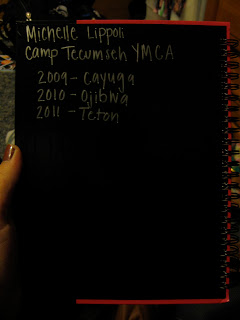 Michelle Lippoli
Camp Tecumseh YMCA
2009 - Cayuga
2010 - Ojibwa
2011 - Teton